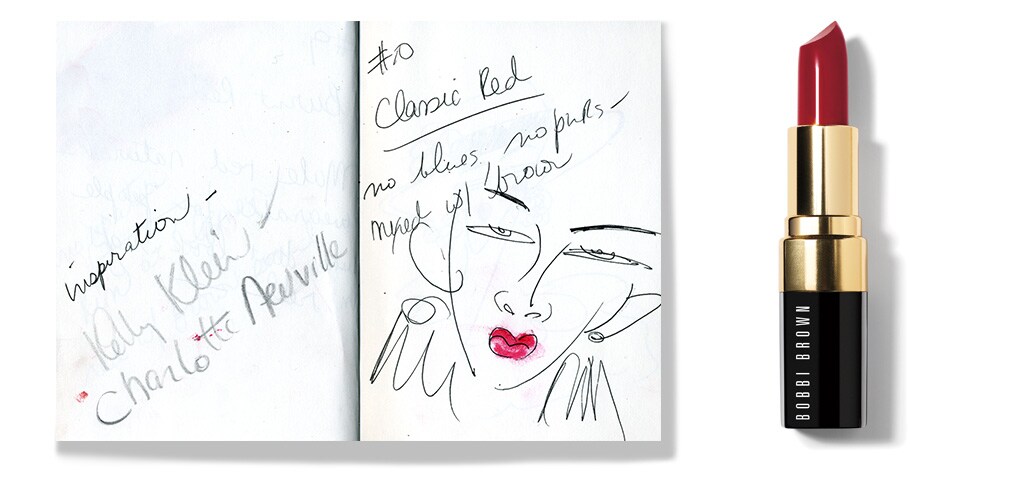 inspiration –
Kelly Klein –
Charlotte Neuville
#10
Classic Red
no blues. no pinks –
mixed w/ brown
BOBBI BROWN